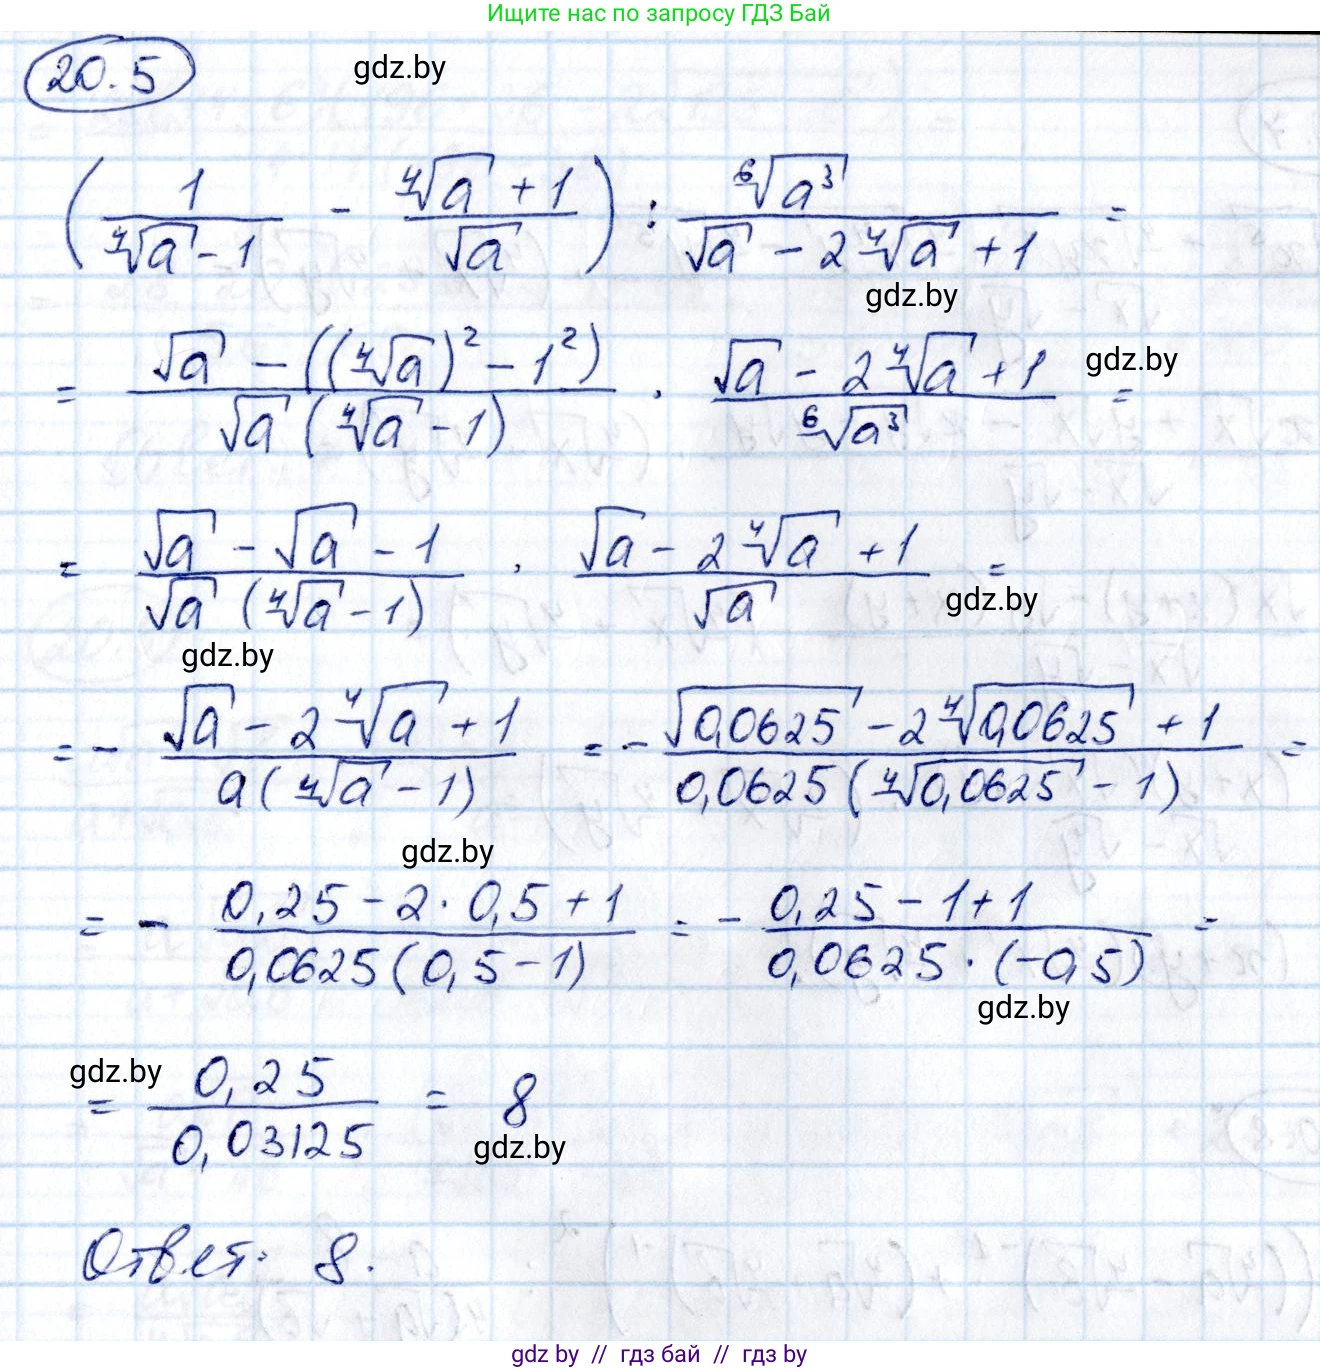 Ищите нас по запросу ГДЗ Бай
20.5 gdz.by
(1/(⁴√a - 1) - (⁴√a + 1)/√a) : ⁶√a³/(√a - 2⁴√a + 1) =
gdz.by
= (√a - ((⁴√a)² - 1²))/(√a (⁴√a - 1)) · (√a - 2⁴√a + 1)/⁶√a³ = gdz.by
= (√a - √a - 1)/(√a (⁴√a - 1)) · (√a - 2⁴√a + 1)/√a = gdz.by
gdz.by
= - (√a - 2⁴√a + 1)/(a(⁴√a - 1)) = - (√0,0625 - 2⁴√0,0625 + 1)/(0,0625(⁴√0,0625 - 1)) =
gdz.by
= - (0,25 - 2 · 0,5 + 1)/(0,0625(0,5 - 1)) = - (0,25 - 1 + 1)/(0,0625 · (-0,5)) =
gdz.by
gdz.by
= 0,25/0,03125 = 8
gdz.by
Ответ: 8.
gdz.by // гдз бай // гдз by